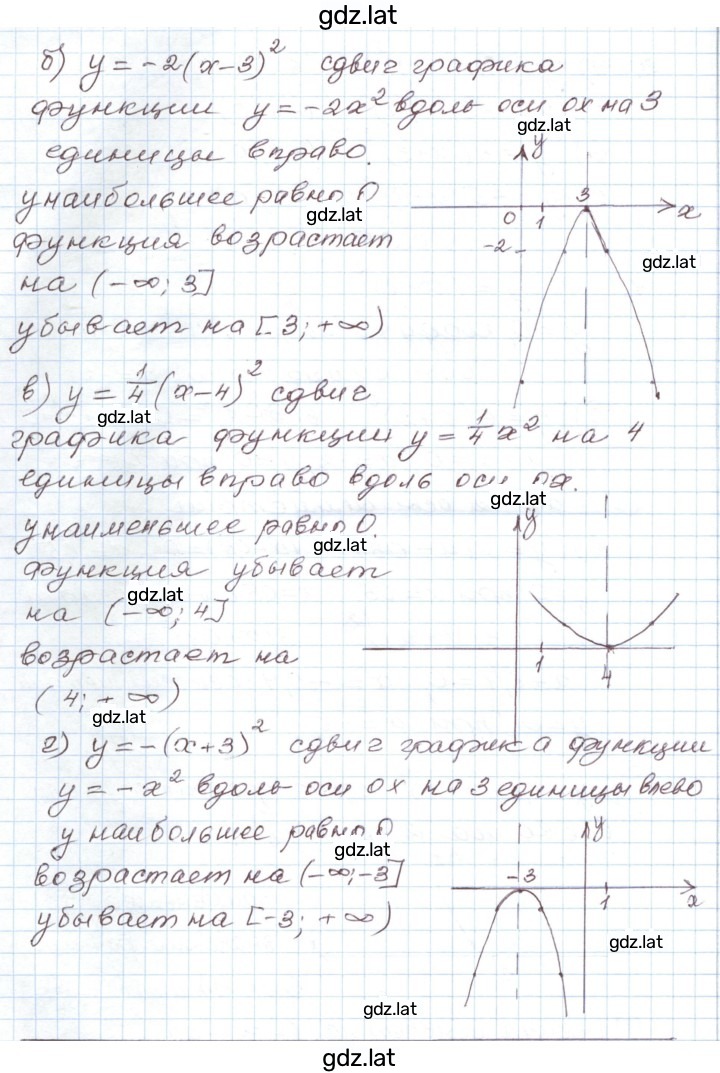 gdz.lat
б) y = -2(x-3)² сдвиг графика
функции y = -2x² вдоль оси ох на 3
gdz.lat
единицы вправо.
y
у наибольшее равно 0
gdz.lat
3
0 1 x
функция возрастает
-2
gdz.lat
на (-∞; 3]
убывает на [3; +∞)
в) y = 1/4 (x-4)² сдвиг
gdz.lat
графика функции y = 1/4 x² на 4
единицы вправо вдоль оси ох.
gdz.lat
у наименьшее равно 0.
y
gdz.lat
функция убывает
gdz.lat
на (-∞; 4]
возрастает на
1 4
(4; +∞)
gdz.lat
г) y = -(x+3)² сдвиг графика функции
y = -x² вдоль оси ох на 3 единицы влево
у наибольшее равно 0
y
gdz.lat
возрастает на (-∞; -3]
-3
1 x
убывает на [-3; +∞)
gdz.lat
gdz.lat
gdz.lat